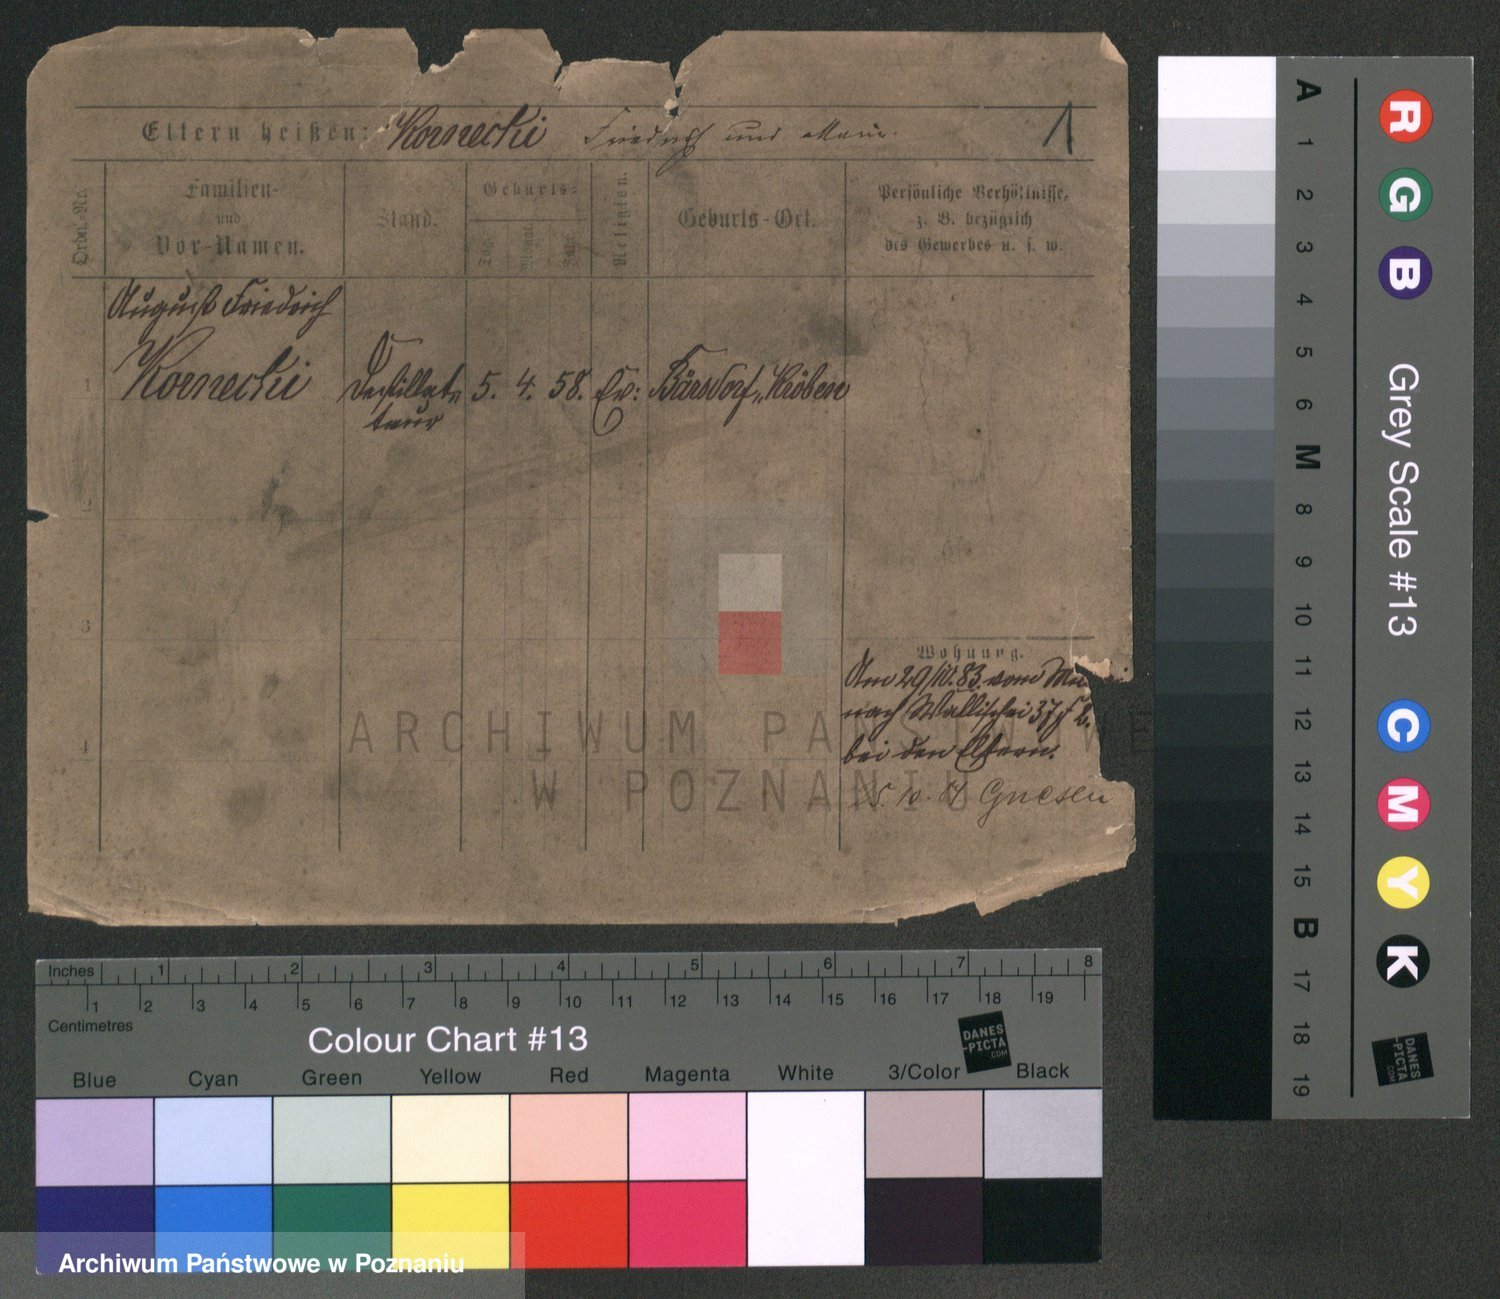 Eltern heißen: Kornecki Friedrich und Marie. 1
Ordn.-Nr.
Familien-
und
Vor-Namen.
Stand.
Geburts-
Tag.
Monat.
Jahr.
Religion.
Geburts-Ort.
Persönliche Verhältnisse,
z. B. bezüglich
des Gewerbes u. s. w.
August Friedrich
1 Kornecki Destillate 5. 4. 58. Ev: Bärsdorf, Kröben
teur
2
3
4
Wohnung.
Am 29/IV. 83. vom
nach Wallischei 37
bei den Eltern.
Gnesen
ARCHIWUM PAŃSTWOWE
W POZNANIU
A 1 2 3 4 5 6 M 8 9 10 11 12 13 14 15 B 17 18 19
R G B
Grey Scale #13
C M Y K
DANES
-PICTA
.COM
Inches 1 2 3 4 5 6 7 8
1 2 3 4 5 6 7 8 9 10 11 12 13 14 15 16 17 18 19
Centimetres
Colour Chart #13
DANES
-PICTA
.COM
Blue Cyan Green Yellow Red Magenta White 3/Color Black
Archiwum Państwowe w Poznaniu